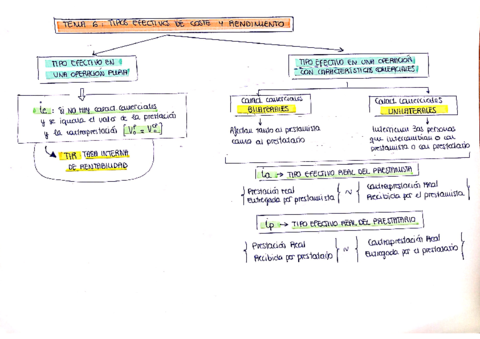 TEMA 6: TIPOS EFECTIVOS DE COSTE Y RENDIMIENTO
TIPO EFECTIVO EN
UNA OPERACIÓN PURA
ie: Si NO HAY caract comerciales
y se iguala el valor de la prestación
y la contraprestación
TIR: TASA INTERNA
DE RENTABILIDAD
TIPO EFECTIVO EN UNA OPERACIÓN
CON CARACTERÍSTICAS COMERCIALES
Caract comerciales
BILATERALES
Afectan tanto al prestamista
como al prestatario
Caract comerciales
UNILATERALES
Intervienen 3as personas
que intercambian o con
prestamista o con prestatario
ia → TIPO EFECTIVO REAL DEL PRESTAMISTA
{ Prestación real
Entregada por prestamista } ~ { Contraprestación Real
Recibida por el prestamista }
ip → TIPO EFECTIVO REAL DEL PRESTATARIO
{ Prestación Real
Recibida por prestatario } ~ { Contraprestación Real
Entregada por el prestatario }